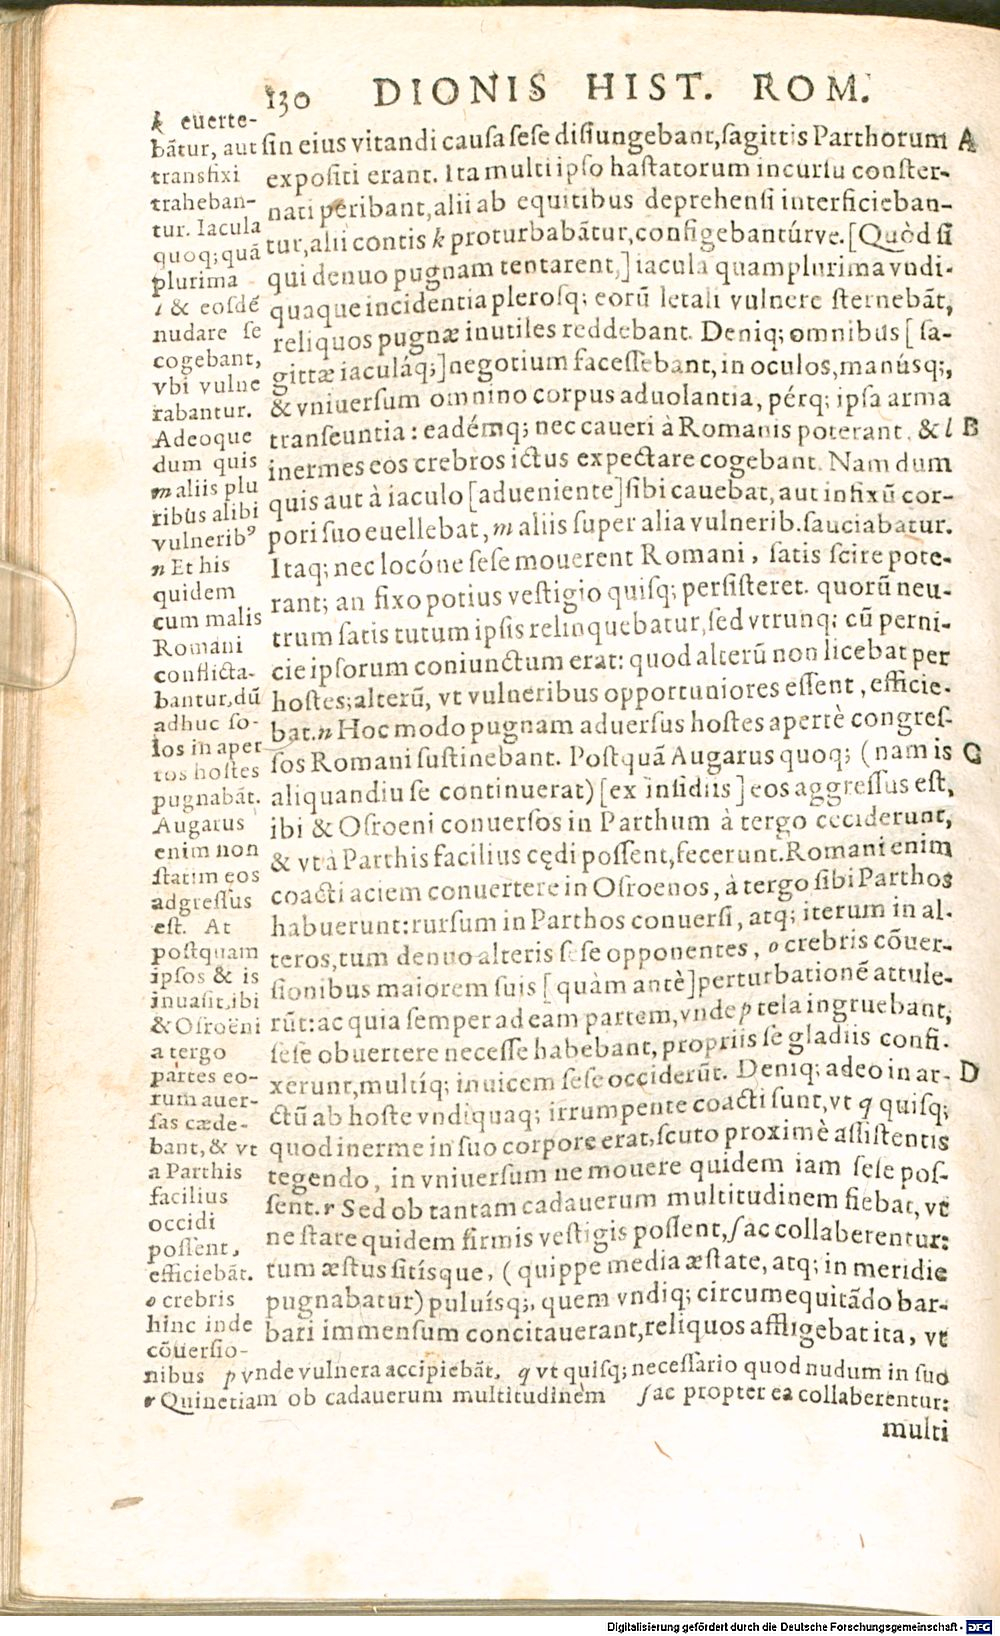 130 DIONIS HIST. ROM.
sin eius vitandi causa sese disiungebant, sagittis Parthorum A
expositi erant. Ita multi ipso hastatorum incursu conster-
nati peribant, alii ab equitibus deprehensi interficieban-
tur, alii contis k proturbabãtur, configebantúrve. [Quòd si
qui denuo pugnam tentarent,] iacula quamplurima vndi-
quaque incidentia plerosq; eorũ letali vulnere sternebãt,
reliquos pugnæ inutiles reddebant. Deniq; omnibus [sa-
gittæ iaculáq;] negotium facessebant, in oculos, manúsq;,
& vniuersum omnino corpus aduolantia, pérq; ipsa arma
transeuntia: eadémq; nec caueri à Romanis poterant, & l B
inermes eos crebros ictus expectare cogebant. Nam dum
quis aut à iaculo [adueniente] sibi cauebat, aut infixũ cor-
pori suo euellebat, m aliis super alia vulnerib. sauciabatur.
Itaq; nec locóne sese mouerent Romani, satis scire pote-
rant; an fixo potius vestigio quisq; persisteret. quorũ neu-
trum satis tutum ipsis relinquebatur, sed vtrunq; cũ perni-
cie ipsorum coniunctum erat: quod alterũ non licebat per
hostes; alterũ, vt vulneribus opportuniores essent, efficie-
bat. n Hoc modo pugnam aduersus hostes apertè congres-
sos Romani sustinebant. Postquã Augarus quoq; (nam is C
aliquandiu se continuerat) [ex insidiis] eos aggressus est,
ibi & Osroeni conuersos in Parthum à tergo ceciderunt,
& vt à Parthis facilius cędi possent, fecerunt. Romani enim
coacti aciem conuertere in Osroenos, à tergo sibi Parthos
habuerunt: rursum in Parthos conuersi, atq; iterum in al-
teros, tum denuo alteris sese opponentes, o crebris cõuer-
sionibus maiorem suis [quàm antè] perturbationẽ attule-
rũt: ac quia semper ad eam partem, vnde p tela ingruebant,
sese obuertere necesse habebant, propriis se gladiis confi-
xerunt, multíq; inuicem sese occiderũt. Deniq; adeo in ar- D
ctũ ab hoste vndiquaq; irrumpente coacti sunt, vt q quisq;
quod inerme in suo corpore erat, scuto proximè assistentis
tegendo, in vniuersum ne mouere quidem iam sese pos-
sent. r Sed ob tantam cadauerum multitudinem fiebat, vt
ne stare quidem firmis vestigis possent, s ac collaberentur:
tum æstus sitísque, (quippe media æstate, atq; in meridie
pugnabatur) puluísq;, quem vndiq; circumequitãdo bar-
bari immensum concitauerant, reliquos affligebat ita, vt
k euerte-
bãtur, aut
transfixi
traheban-
tur. Iacula
quoq; quã
plurima
l & eosdẽ
nudare se
cogebant,
vbi vulne
rabantur.
Adeoque
dum quis
m aliis plu
ribus alibi
vulneribꝰ
n Et his
quidem
cum malis
Romani
conflicta-
bantur, dũ
adhuc so-
los in aper
tos hostes
pugnabãt.
Augarus
enim non
statim eos
adgressus
est. At
postquam
ipsos & is
inuasit, ibi
& Osroëni
a tergo
partes eo-
rum auer-
sas cæde-
bant, & vt
a Parthis
facilius
occidi
possent,
efficiebãt.
o crebris
hinc inde
cõuersio-
nibus p vnde vulnera accipiebãt, q vt quisq; necessario quod nudum in suo
r Quinetiam ob cadauerum multitudinem s ac propter ea collaberentur:
multi
Digitalisierung gefördert durch die Deutsche Forschungsgemeinschaft - DFG